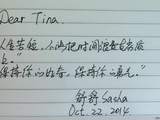 Dear Tina.
人生苦短，不 把时间浪费
保持你的 ，保持你的 。"
舒舒Sasha
Oct. 22. 2014